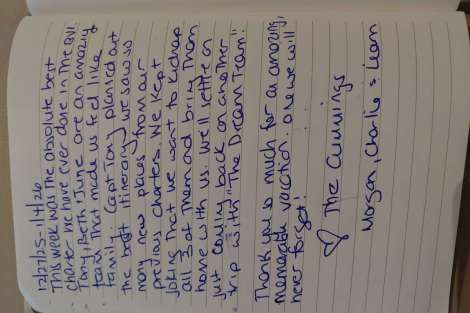 12/27/25-1/4/26
This week was the absolute best
charter we have ever done in the BVI.
Tony, Beth & June are an amazing
team that made us feel like
family. Capt Tony planned out
the best itinerary, we saw so
many new places from our
previous charters. We kept
joking that we want to kidnap
all 3 of them and bring them
home with us. We'll settle on
just coming back on another
trip with "The Dream Team."
Thank you so much for an amazing,
memorable vacation. One we will
never forget!
The Cummings
Morgan, Charlie & Liam